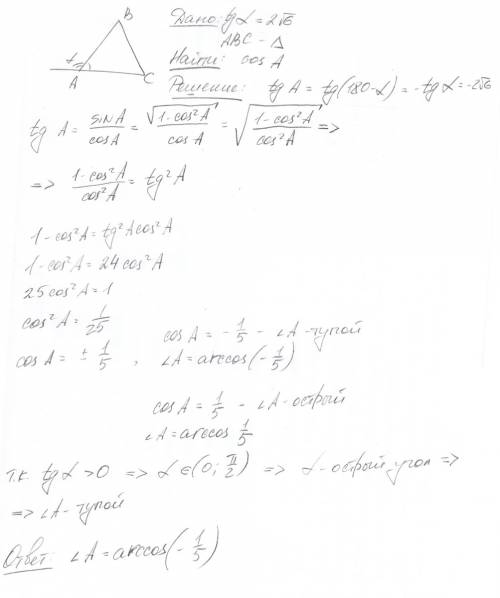 B
A
C
Дано: tg α = 2√6
ABC - Δ
Найти: cos A
Решение: tg A = tg(180-α) = -tg α = -2√6
tg A = sin A / cos A = √(1-cos²A) / cos A = √((1-cos²A) / cos²A) =>
=> (1-cos²A) / cos²A = tg²A
1-cos²A = tg²A cos²A
1-cos²A = 24cos²A
25cos²A = 1
cos²A = 1/25
cos A = ± 1/5 , cos A = -1/5 - ∠A - тупой
∠A = arccos(-1/5)
cos A = 1/5 - ∠A - острый
∠A = arccos 1/5
т.к. tg α > 0 => α ∈ (0; π/2) => α - острый угол =>
=> ∠A - тупой
Ответ: ∠A = arccos(-1/5)